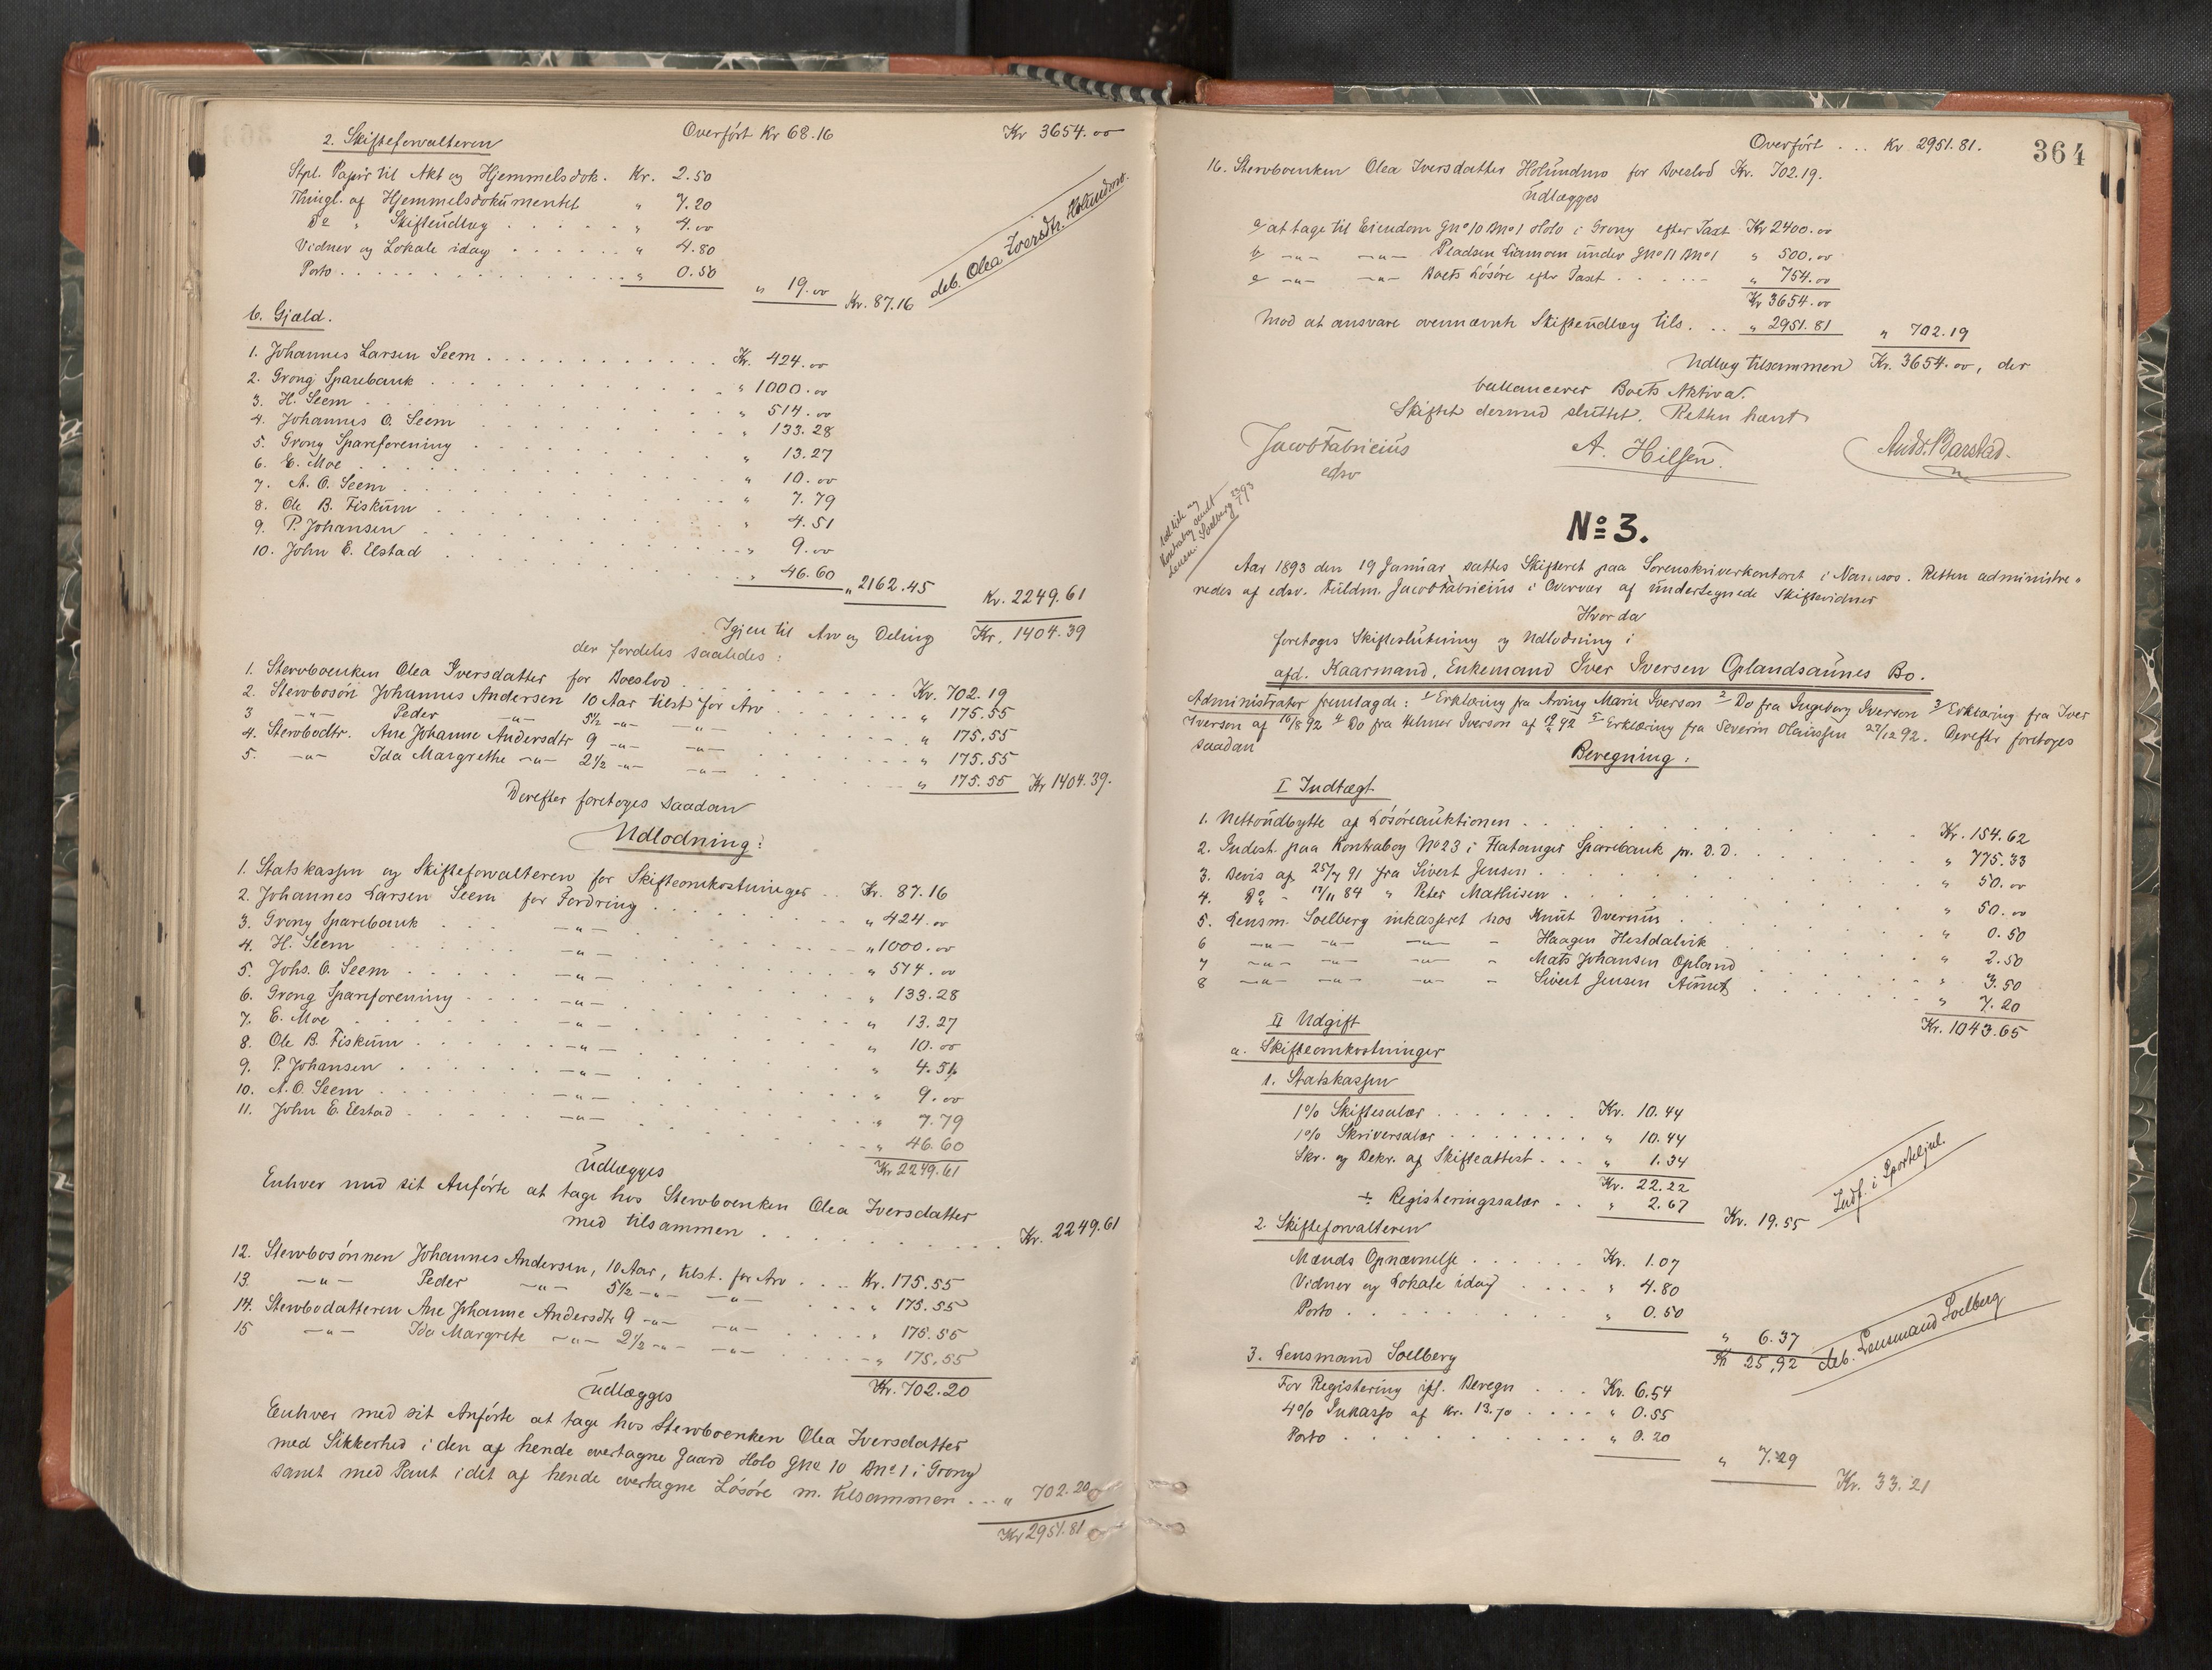 Overført Kr 68.16 Kr 3654.00
2. Skifteforvalteren
Stpl. Papir til Akt og Hjemmelsdok. Kr. 2.50
Thingl. af Hjemmelsdokumentet " 7.20
Do " Skifteudlæg . . . . . " 4.00
Vidner og Lokale idag . . . . . " 4.80
Porto . . . . . " 0.50
" 19.00 Kr. 87.16
deb. Olea Iversdtr. Holundmo.
b. Gjæld.
1. Johannes Larsen Seem . . . . . Kr. 424.00
2. Grong Sparebank . . . . . " 1000.00
3. H. Seem . . . . . " 514.00
4. Johannes O. Seem . . . . . " 133.28
5. Grong Spareforening . . . . . " 13.27
6. E. Moe . . . . . " 10.00
7. A. O. Seem . . . . . " 7.79
8. Ole B. Fiskum . . . . . " 4.51
9. P. Johansen . . . . . " 9.00
10. John E. Elstad . . . . . " 46.60 " 2162.45
Kr. 2249.61
Igjen til Arv og Deling Kr. 1404.39
der fordeles saaledes:
1. Stervboenken Olea Iversdatter for Boeslod . . . . . Kr. 702.19
2. Stervbosøn Johannes Andersen 10 Aar tilst for Arv . . . . . " 175.55
3 -"- Peder -"- 5½ -"- -"- . . . . . " 175.55
4. Stervbodtr. Ane Johanne Andersdtr 9 -"- -"- . . . . . " 175.55
5. -"- Ida Margrethe -"- 2½ -"- -"- . . . . . " 175.55 Kr 1404.39.
Derefter foretoges saadan
Udlodning:
1. Statskassen og Skifteforvalteren for Skifteomkostninger . . Kr. 87.16
2. Johannes Larsen Seem for Fordring . . . . . " 424.00
3. Grong Sparebank . . . -"- . . . . . " 1000.00
4. H. Seem . . . -"- . . . . . " 514.00
5. Johs. O. Seem . . . -"- . . . . . " 133.28
6. Grong Spareforening . . . -"- . . . . . " 13.27
7. E. Moe . . . -"- . . . . . " 10.00
8. Ole B. Fiskum . . . -"- . . . . . " 4.51
9. P. Johansen . . . -"- . . . . . " 9.00
10. A. O. Seem . . . -"- . . . . . " 7.79
11. John E. Elstad . . . -"- . . . . . " 46.60
Kr 2249.61
Udlægges
Enhver med sit Anførte at tage hos Stervboenken Olea Iversdatter
med tilsammen . . . . . Kr. 2249.61
12. Stervbosønnen Johannes Andersen, 10 Aar, tilst. for Arv . . . . Kr. 175.55
13. -"- Peder -"- 5½ -"- -"- . . . " 175.55
14. Stervbodatteren Ane Johanne Andersdtr 9 -"- -"- . . . . " 175.55
15 -"- Ida Margrete -"- 2½ -"- -"- . . . " 175.55
Kr. 702.20
Udlægges
Enhver med sit Anførte at tage hos Stervboenken Olea Iversdatter
med Sikkerhed i den af hende overtagne Gaard Holo Gno 10 Bno 1 i Grong
samt med Pant i det af hende overtagne Løsøre m. tilsammen . . . " 702.20
Kr 2951.81
364
Overført . . . Kr 2951.81.
16. Stervboenken Olea Iversdatter Holundmo for Boeslod Kr. 702.19.
Udlægges
a/ at tage til Eiendom Gno 10 Bno 1 Holo i Grong efter Taxt Kr 2400.00
b/ -"- -"- Pladsen Liamoen under Gno 11 Bno 1 " 500.00
c/ -"- -"- Boets Løsøre efter Taxt . . . . . " 754.00
Kr 3654.00
Mod at ansvare ovennævnte Skifteudlæg tils. . . " 2951.81 " 702.19
Udlæg tilsammen Kr. 3654.00, der
ballancerer Boets Aktiva.
Skiftet dermed sluttet. Retten hævet
Jacob Fabricius A. Hilsen. Ands. Barstad.
edsv
Kontrabog sendt
Lensm. Soelberg 23/1 93
No 3.
Aar 1893 den 19 Januar sattes Skifteret paa Sorenskriverkontoret i Namsos. Retten administre=
redes af edsv. Fuldm. Jacob Fabricius i Overvær af undertegnede Skiftevidner
Hvorda
foretoges Skifteslutning og Udlodning i
afd. Kaarmand, Enkemand Iver Iversen Oplandsaunes Bo.
Administrator fremlagde: 1/ Erklæring fra Marie Iverson 2/ Do fra Ingeborg Iverson 3/ Erklæring fra Iver
Iverson af 10/8 92 4/ Do fra Helmer Iverson af 92 5/ Erklæring fra Severin Olaissen 27/12 92. Derefter foretoges
saadan
Beregning:
I Indtægt
1. Nettoudbytte af Løsøreauktionen . . . . . Kr. 154.62
2. Indest. paa Kontrabog No 23 i Flatanger Sparebank pr. D.D. . . . . . " 775.33
3. Bevis af 25/7 91 fra Sivert Jensen . . . . . " 50.00
4. Do - 17/11 84 " Peter Mathisen . . . . . " 50.00
5. Lensm. Soelberg inkasseret hos Knut Dvernes . . . . . " 0.50
6 -"- -"- -"- - Haagen Hestdalvik . . . . . " 2.50
7 -"- -"- -"- - Mats Johansen Opland . . . . . " 3.50
8 -"- -"- -"- - Sivert Jensen Aunet . . . . . " 7.20
Kr. 1043.65
II Udgift
a. Skifteomkostninger
1. Statskassen
1% Skiftesalær . . . . . Kr. 10.44
1% Skriversalær . . . . . " 10.44
Skr. og Dekr. af Skifteattest . . . " 1.34
Kr. 22.22
÷ Registeringssalær . . " 2.67
Kr. 19.55
Indf. i Sporteljnl.
2. Skifteforvalteren
Mænds Opnævnelse . . . . . Kr. 1.07
Vidner og Lokale idag . . . . " 4.80
Porto . . . . . " 0.50
" 6.37
Kr 25.92 deb. Lensmand Soelberg
3. Lensmand Soelberg
For Registering ifl. Beregn . . . Kr. 6.54
4% Inkasso af Kr. 13.70 . . . . " 0.55
Porto . . . . . " 0.20
" 7.29
Kr. 33.21